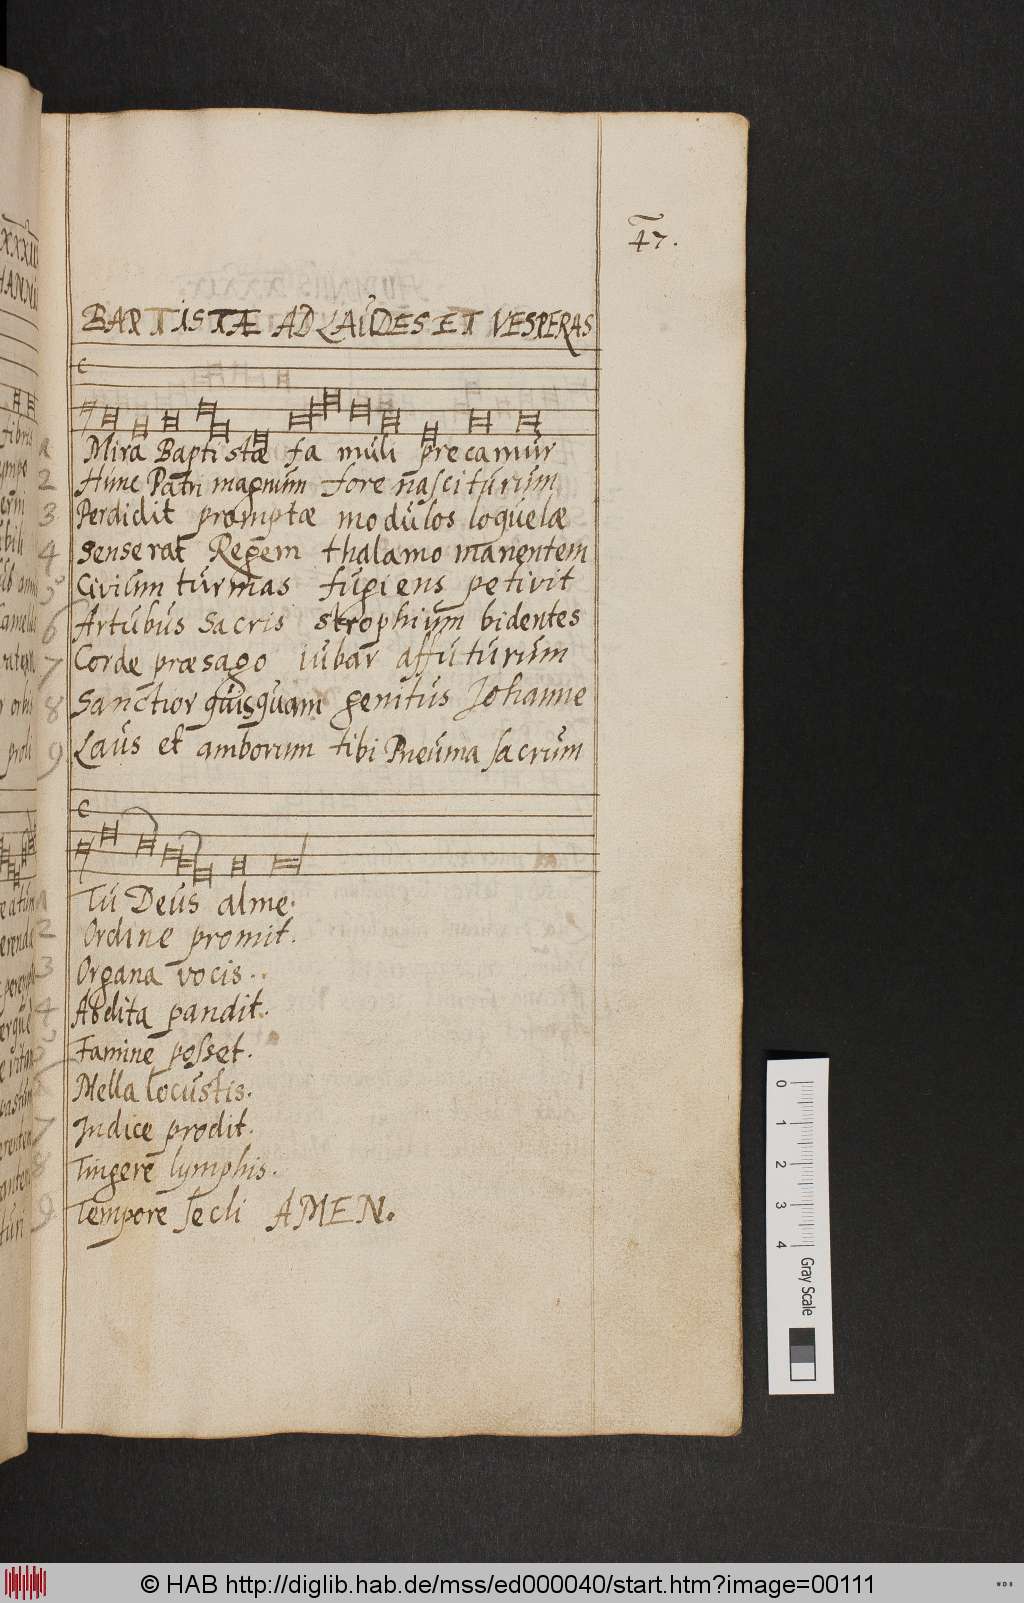 47.
BAPTISTÆ AD LAUDES ET VESPERAS
Mira Baptistæ fa muli precamur
Hunc Patri magnum fore nasciturum
Perdidit promptæ modulos loquelæ
Senserat Regem thalamo manentem
Civium turmas fugiens petivit
Artubus Sacris strophium bidentes
Corde præsago iubar affuturum
Sanctior quisquam genitus Johanne
Laus et amborum tibi Pneuma sacrum
2
3
4
5
6
7
8
9
Tu Deus alme.
Ordine promit.
Organa vocis.
Abdita pandit.
Famine posset.
Mella locustis.
Indice prodit.
Tingere lymphis.
Tempore secli AMEN.
2
3
4
7
8
9
0 1 2 3 4 Gray Scale
© HAB http://diglib.hab.de/mss/ed000040/start.htm?image=00111